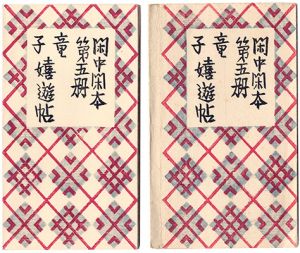 閑中閑本
第五册
童
子嬉遊帖
閑中閑本
第五册
童
子嬉遊帖